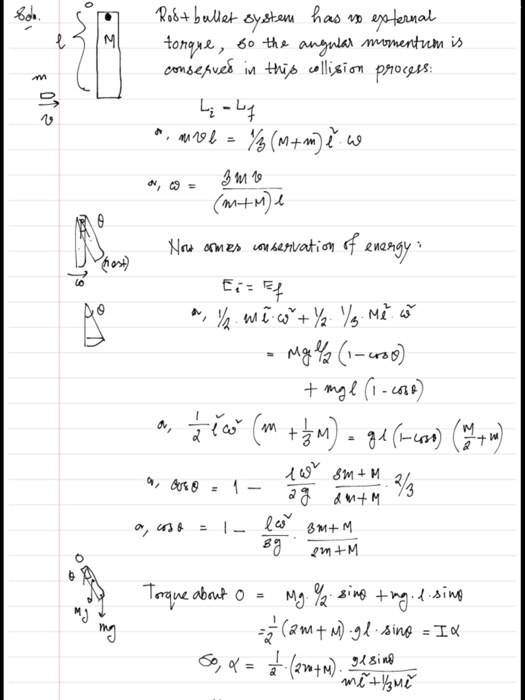 Soln.
O
M
l
m
v
Rod + bullet system has no external
torque, so the angular momentum is
conserved in this collision process:
Li - Lf
or, mvl = 1/3 (M+m) l² . ω
or, ω = 3mv / (m+M) l
θ
(rest)
ω
Now comes conservation of energy :
Ei = Ef
or, 1/2 . m l² . ω² + 1/2 . 1/3 . M l² . ω²
= Mg l/2 (1 - cosθ)
+ mgl (1 - cosθ)
θ
or, 1/2 l² ω² (m + 1/3 M) = gl (1 - cosθ) (M/2 + m)
or, cosθ = 1 - lω²/2g . 3m+M / 2m+M . 2/3
or, cosθ = 1 - lω²/3g . 3m+M / 2m+M
O
θ
Mg
mg
Torque about O = Mg . l/2 . sinθ + mg . l . sinθ
= 1/2 (2m+M) . gl . sinθ = Iα
So, α = 1/2 . (2m+M) . gl sinθ / ml² + 1/3 Ml²